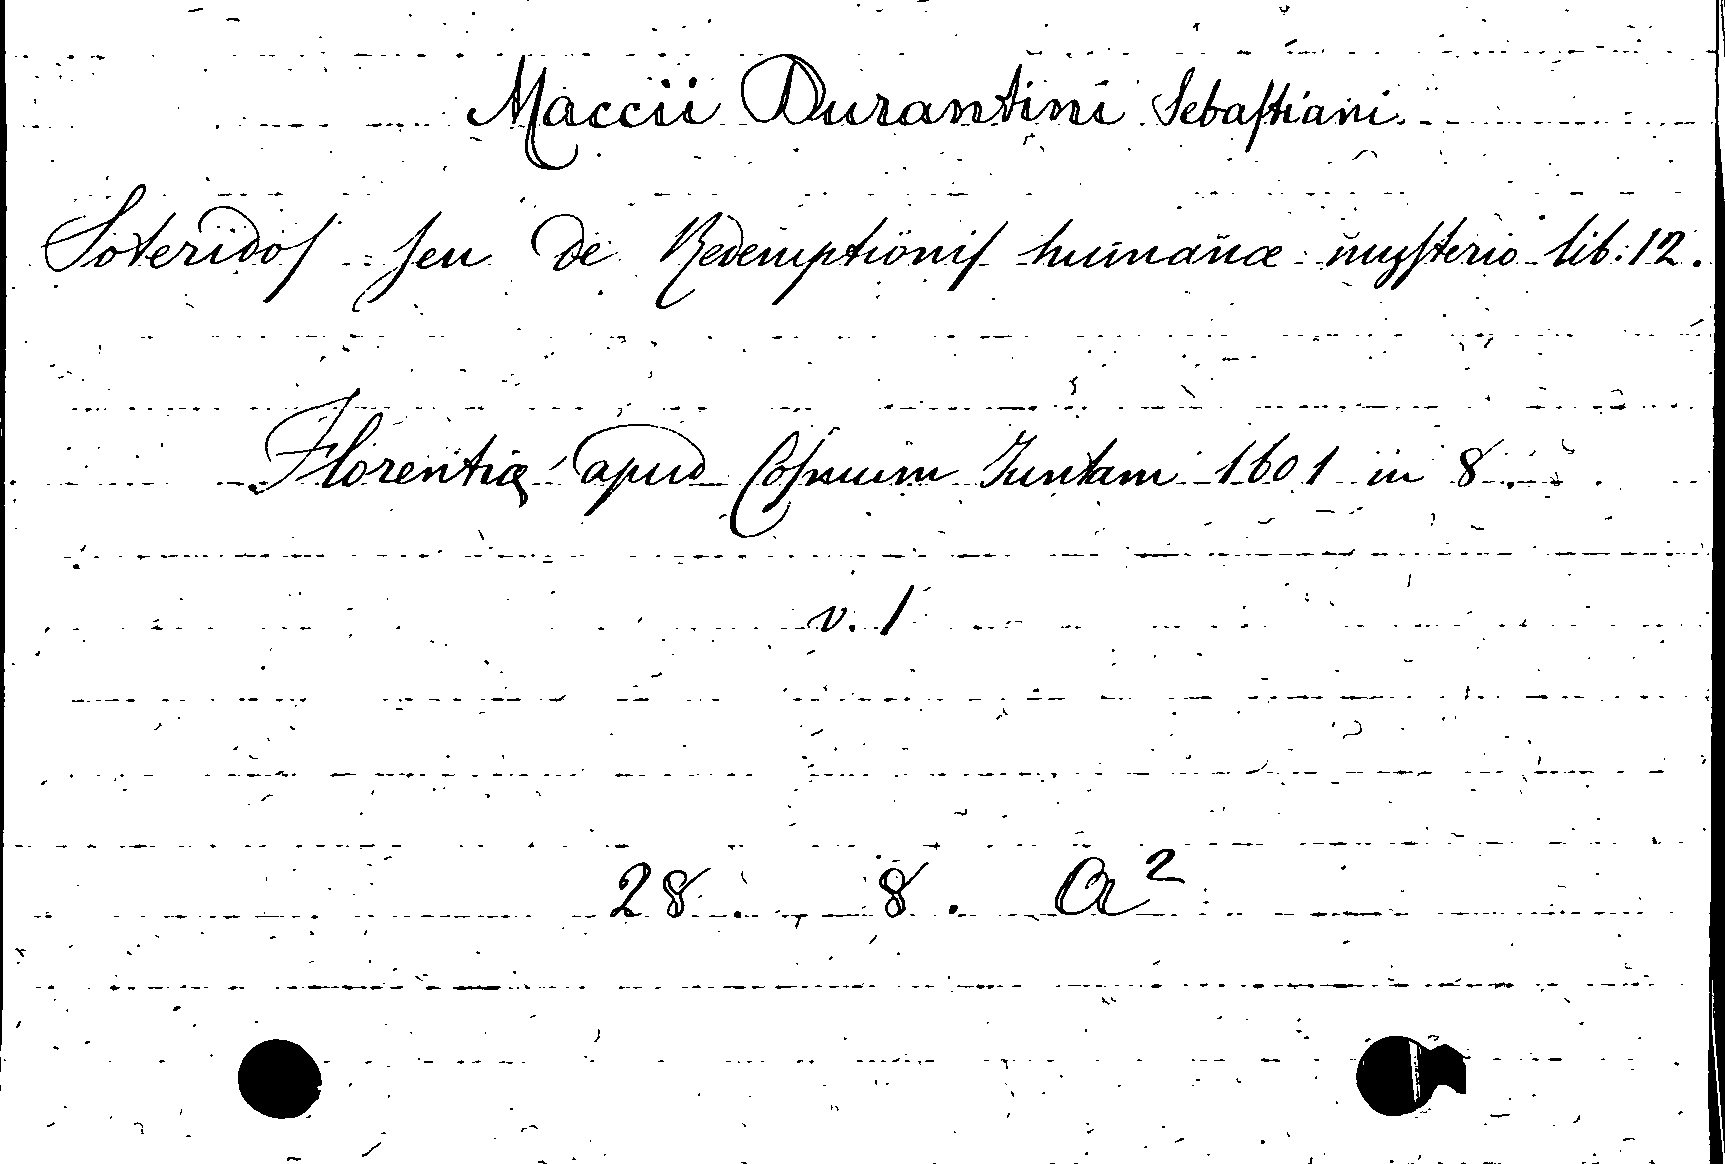 Maccii Durantini Sebaſtiani
Soteridoſ ſeu de Redemptioniſ humanæ myſterio lib: 12.
Florentiæ apud Coſmum Juntam 1601 in 8.
v. 1
28. 8. a²